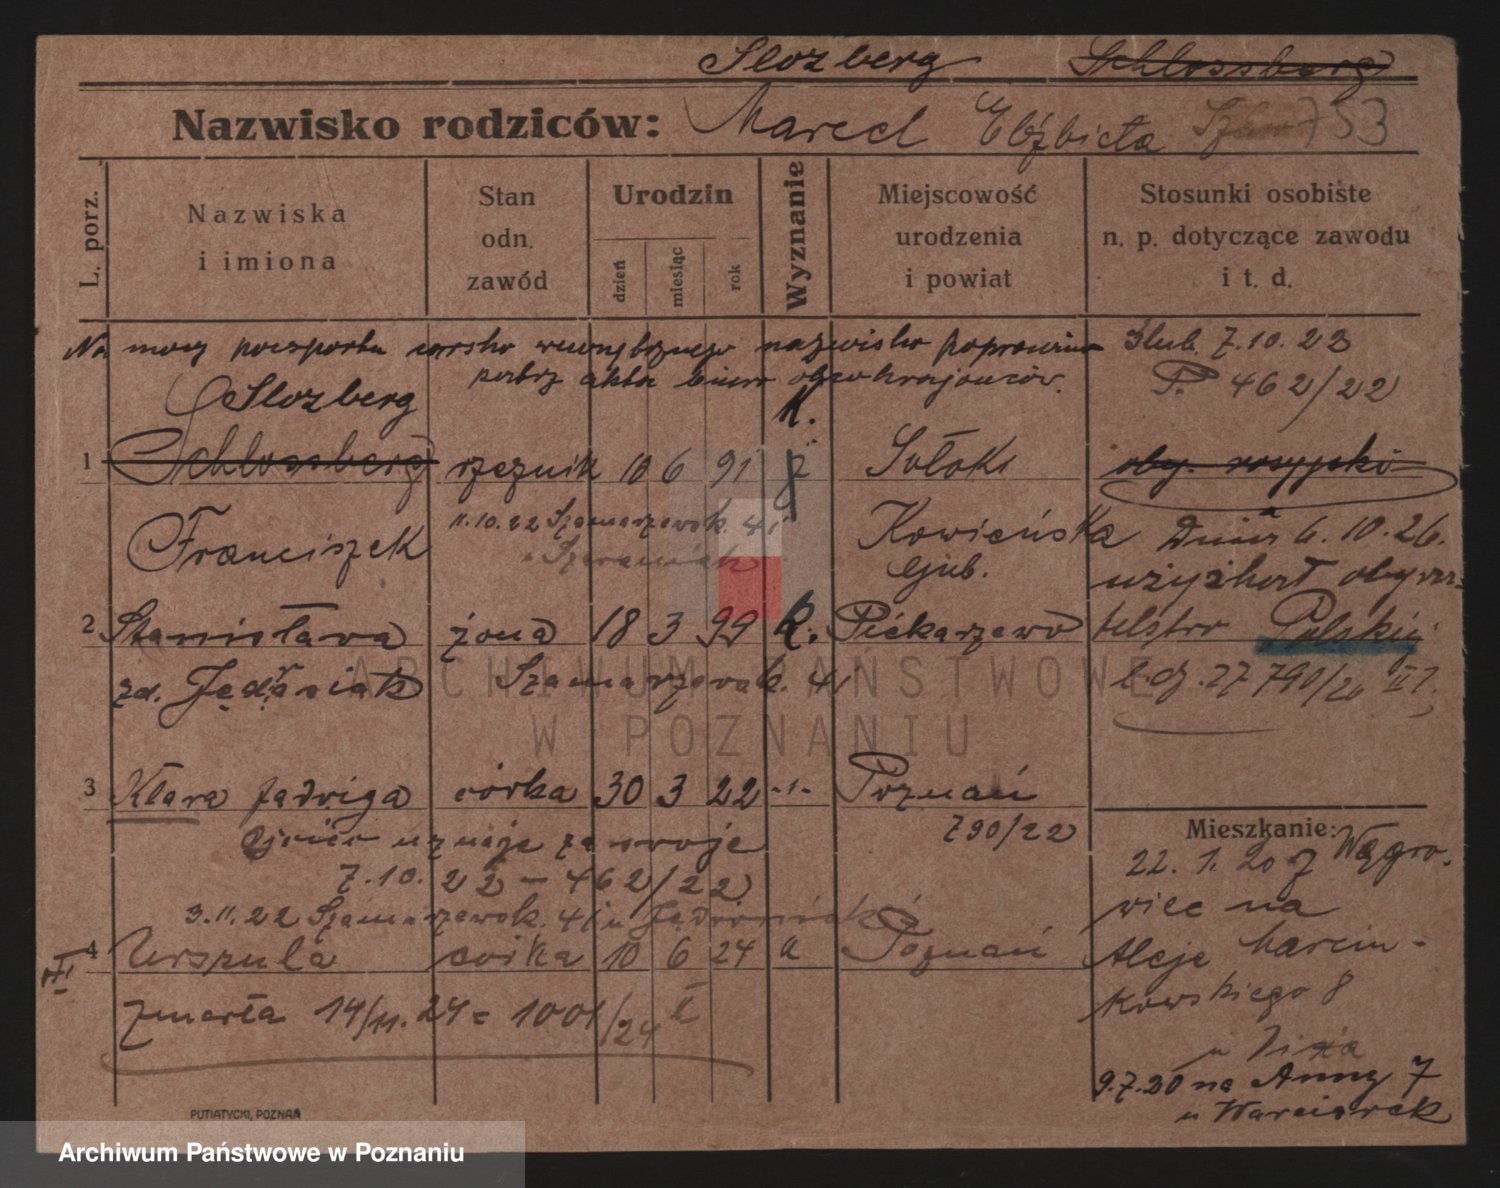 Slozberg Schlossberg
Nazwisko rodziców: Marcel Elżbieta 753
L. porz.
Nazwiska
i imiona
Stan
odn.
zawód
Urodzin
dzień
miesiąc
rok
Wyznanie
Miejscowość
urodzenia
i powiat
Stosunki osobiste
n. p. dotyczące zawodu
i t. d.
Na mocy paszportu nazwisko
Ślub. 7.10.22
P. 462/22
Slozberg
K.
1 Schlossberg rzeźnik 10 6 91 ż Sołoki
oby. rosyjski
Franciszek 11.10.22 Szamarzewsk. 41
Kowieńska
gub.
Dnia 6.10.26.
uzyskał obywa-
telstwo Polskie
2 Stanisława żona 18 3 99 k. Piekarzewo
zd. Szamarzewsk. 41
l.dz. 27790/26 II 7.
3 Klara Jadwiga córka 30 3 22 -"- Poznań
790/22
Ojciec uznaje za swoje
7.10.22 – 462/22
3.11.22 Szamarzewsk. 41 u
4 Urszula córka 10 6 24 k Poznań
zmarła 14/11.24 = 1001/24
Mieszkanie:
22.1.20 z Wągro-
wiec na
Aleje Marcin-
kowskiego 8
9.7.20 na Anny 7
u
PUTIATYCKI, POZNAŃ
ARCHIWUM PAŃSTWOWE
W POZNANIU
Archiwum Państwowe w Poznaniu